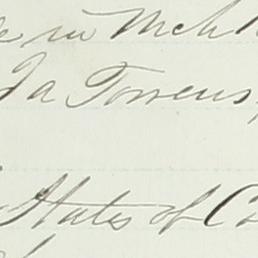 in Meh
Ida Torrens,
States of C